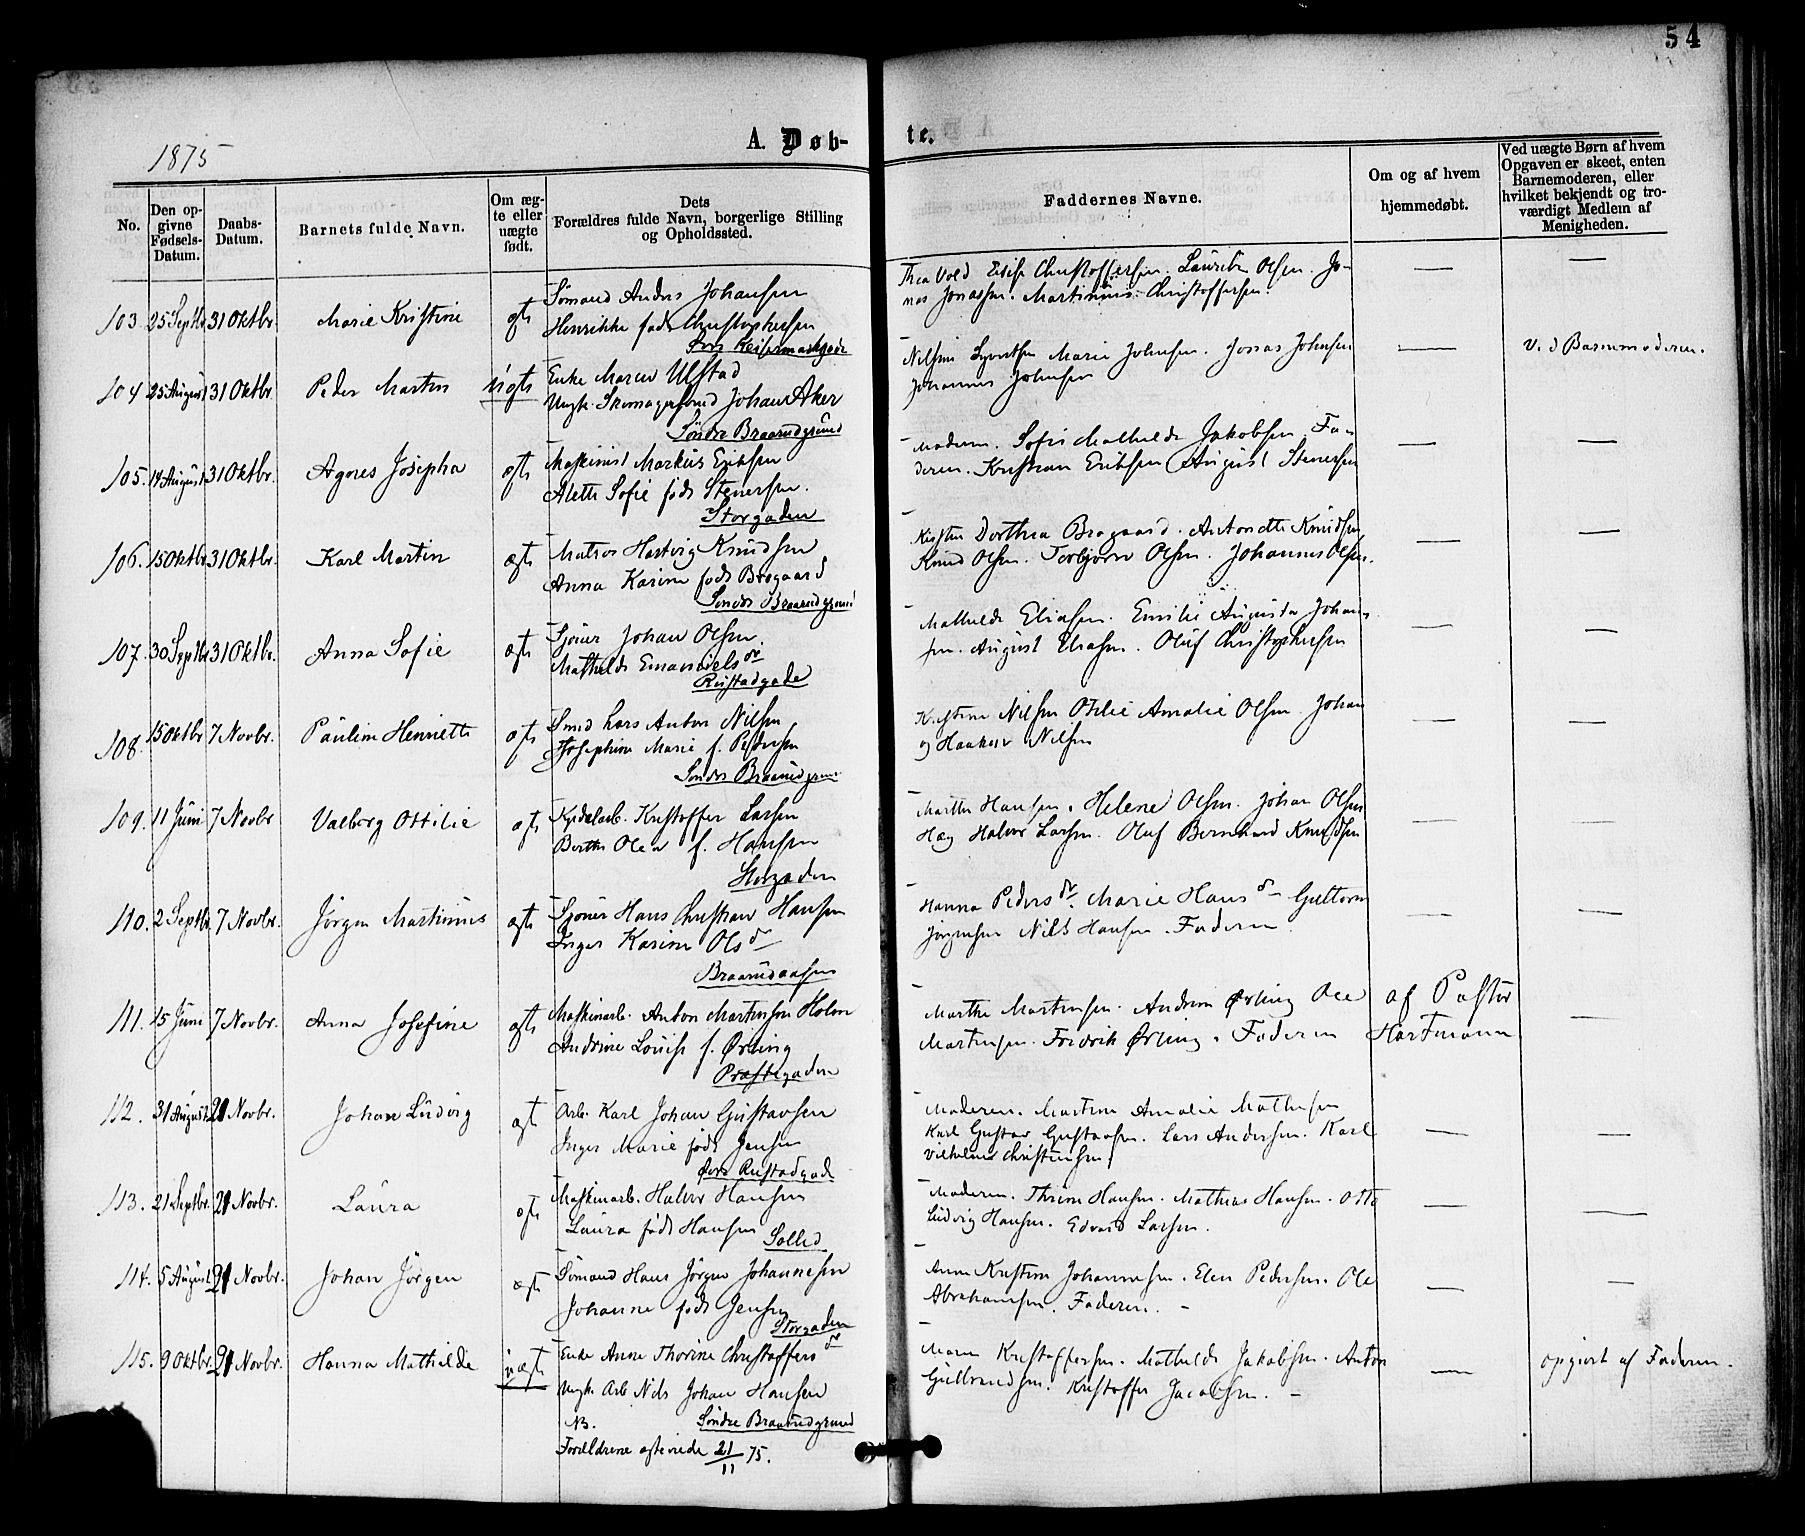 54
1875
A. Døb-
te.
No.
Den op-
givne
Fødsels-
Datum.
Daabs-
Datum.
Barnets fulde Navn.
Om æg-
te eller
uægte
født.
Dets
Forældres fulde Navn, borgerlige Stilling
og Opholdssted.
Faddernes Navne.
Om og af hvem
hjemmedøbt.
Ved uægte Børn af hvem
Opgaven er skeet, enten
Barnemoderen, eller
hvilket bekjendt og tro-
værdigt Medlem af
Menigheden.
103. 25 Septbr 31 Oktbr. Marie Kristine ægte
Sömand Anders Johansen
Henrikke født Christophersen
Thea Vold Elise Christoffersen. Laurits Olsen. Jo-
nas Jonassen. Martinius Christoffersen.
— —
104 25 August 31 Oktbr. Peder Martin uægte
Enke Maren Ulstad
Ungk. Skomagersvend Johan Aker
Söndre Braarudgrund
Nilsine Syvertsen Marie Johnsen. Jonas Johnsen
Johannes Johnsen
— Ved Barnemoderen.
105. 14 August 31 Oktbr. Agnes Josepha ægte
Maskinist Markus Eriksen
Alette Sofie född Stenersen.
Storgaden
Moderen. Sofie Mathilde Jakobsen. Fa-
deren. Kristian Eriksen August Stenersen
— —
106. 15 Oktbr. 31 Oktbr. Karl Martin ægte
Matros Hartvig Knudsen
Anna Karine född Brogaard
Söndre Braarudgrund
Kirsten Dorthea Brogaard. Antonette Knudsen
Knud Olsen. Torbjörn Olsen. Johannes Olsen.
— —
107. 30 Septbr 31 Oktbr. Anna Sofie ægte
Sjöuer Johan Olsen.
Mathilde Emanuels dr
Rustadgade
Mathilde Eliasen. Emilie Augusta Johan-
sen. August Eliasen. Oluf Christophersen
— —
108. 15 Oktbr 7 Novbr. Pauline Henriette ægte
Smed Lars Anton Nilsen
Josephine Marie f. Pedersen
Söndre Braarudgrund
Kristine Nilsen Otilie Amalie Olsen. Johan
og Haaken Nilsen
— —
109. 11 Juni 7 Novbr Valborg Ottilie ægte
Kjedelarb. Kristoffer Larsen
Berthe Olea f. Hansen
Storgaden
Marthe Hansen. Helene Olsen. Johan Olsen
Hæg Halvor Larsen. Oluf Bernhard Knudsen
— —
110. 2 Septbr. 7 Novbr. Jörgen Martinius ægte
Sjöuer Hans Christian Hansen
Inger Karine Ols dr
Braarudaasen
Hanna Peders dr. Marie Hans dr Guttorm
Jörgensen Nils Hansen. Faderen.
— —
111. 15 Juni 7 Novbr. Anna Josefine ægte
Maskinarb. Anton Martinsen Holm
Andrine Louise f. Ørling
Præstegaden
Marthe Martinsen. Andrine Ørling Ole
Martinsen. Fredrik Ørling. Faderen
af Pastor
Hartmann
—
112. 31 August 21 Novbr. Johan Ludvig ægt
Arb. Karl Johan Gustavsen
Inger Marie född Jensen
Övre Rustadgade
Moderen. Martine Amalie Mathisen
Karl Gustav Gustavsen. Lars Andersen. Karl
Vilhelm Christensen.
— —
113. 21 Septbr. 21 Novbr. Laura ægte
Maskinarb. Halvor Hansen
Laura född Hansen
Sollid
Moderen. Thrine Hansen. Mathias Hansen. Otto
Ludvig Hansen. Edvard Larsen.
— —
114. 5 August 21 Novbr. Johan Jörgen ægte
Sömand Hans Jörgen Johannesen
Johanne född Jensen
Storgaden
Anne Kristine Johannesen. Elen Pedersen. Ole
Abrahamsen. Faderen. —
— —
115. 9 Oktbr. 21 Novbr. Hanna Mathilde uægte
Enke Anne Thorine Christoffers dr
Ungk. Arb Nils Johan Hansen
NB. Söndre Braarudgrund
Forældrene ægteviede 21/11 75.
Maren Kristoffersen. Mathilde Jakobsen. Anton
Gulbrandsen. Kristoffer Jacobsen. —
— opgivet af Faderen.